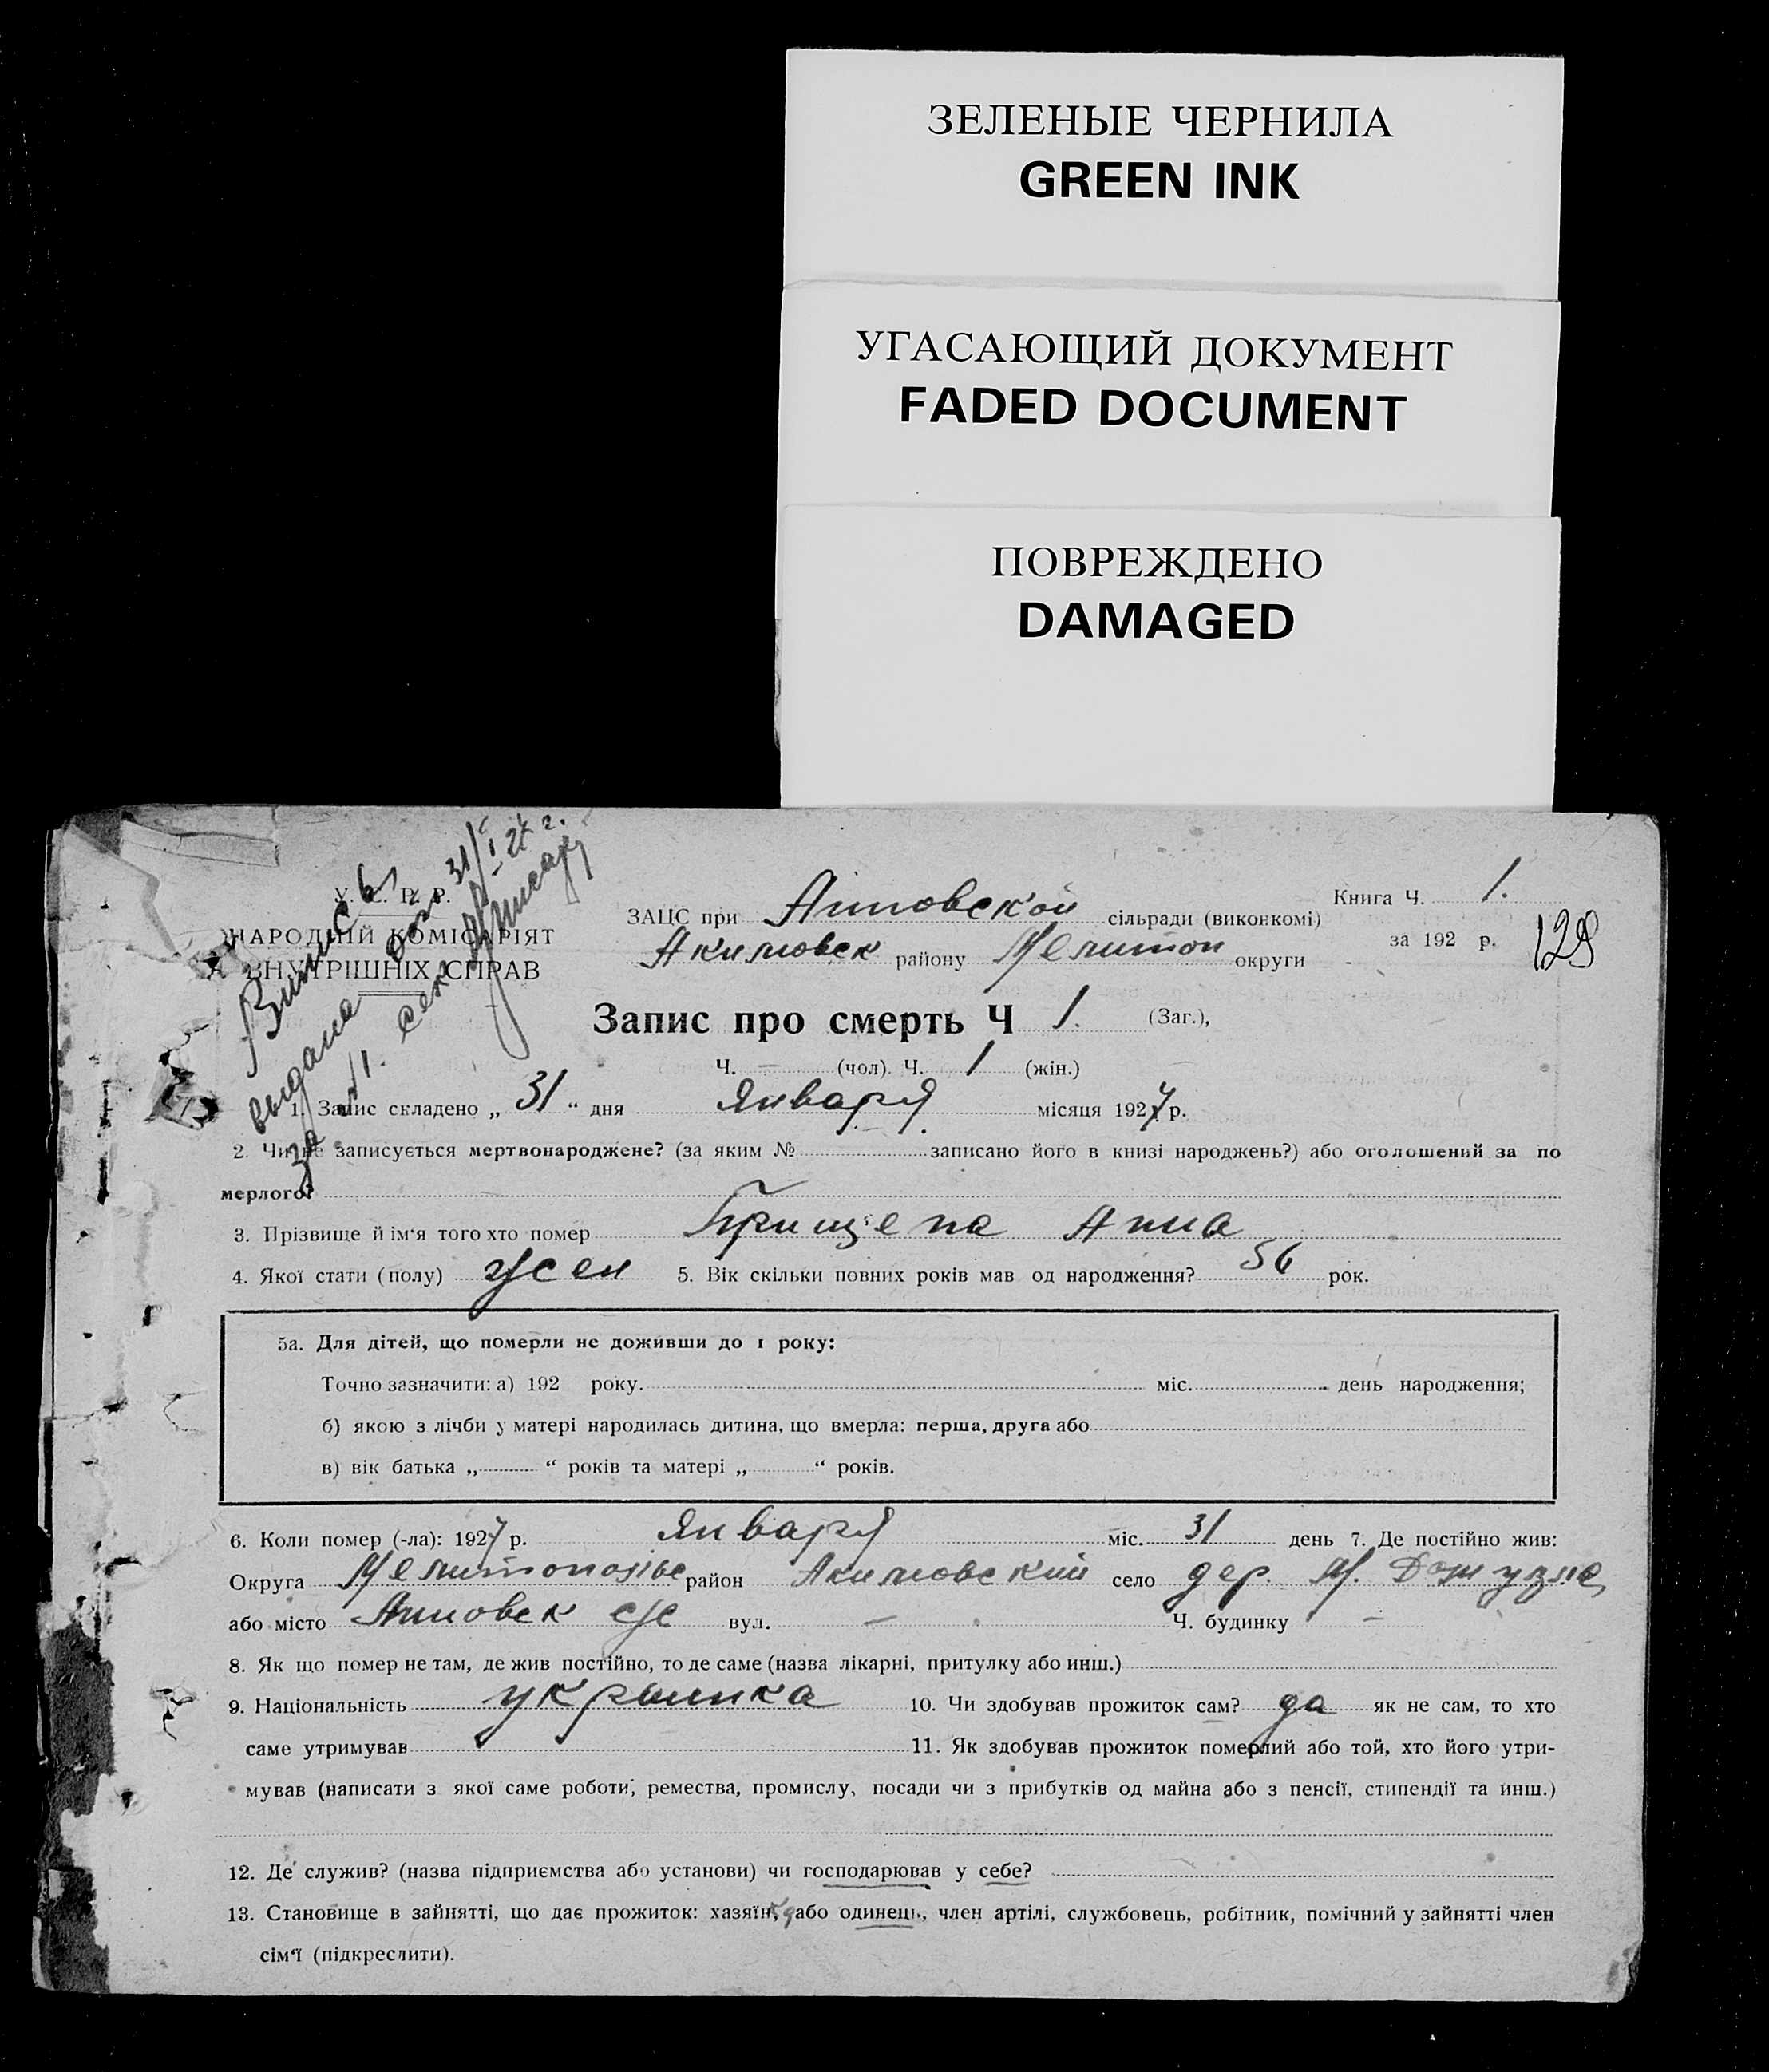 ЗЕЛЕНЫЕ ЧЕРНИЛА
GREEN INK
УГАСАЮЩИЙ ДОКУМЕНТ
FADED DOCUMENT
ПОВРЕЖДЕНО
DAMAGED
У. С. Р. Р.
НАРОДНІЙ КОМІСАРІЯТ
ВНУТРІШНІХ СПРАВ
выдана
за
31/I 27 г.
ЗАГС при Анновской сільради (виконкомі)
Акимовск району Мелитоп округи
Книга Ч. 1.
за 192 р.
129
Запис про смерть Ч 1. (Заг.),
Ч. — (чол). Ч. 1 (жін.)
1. Запис складено „ 31 “ дня Января місяця 1927 р.
2. Чи не записується мертвонароджене? (за яким № записано його в книзі народжень?) або оголошений за по
мерлого?
3. Прізвище й ім'я того хто помер Прищепа Анна
4. Якої стати (полу) жен 5. Вік скільки повних років мав од народження? 56 рок.
5а. Для дітей, що померли не доживши до 1 року:
Точно зазначити: а) 192 року. міс. день народження;
б) якою з лічби у матері народилась дитина, що вмерла: перша, друга або
в) вік батька „ “ років та матері „ “ років.
6. Коли помер (-ла): 1927 р. Января міс. 31 день 7. Де постійно жив:
Округа район Акимовский село дер. М.
або місто Анновск с/с вул. — Ч. будинку —
8. Як що помер не там, де жив постійно, то де саме (назва лікарні, притулку або инш.)
9. Національність укрыинка 10. Чи здобував прожиток сам? да як не сам, то хто
саме утримував 11. Як здобував прожиток померлий або той, хто його утри-
мував (написати з якої саме роботи, ремества, промислу, посади чи з прибутків од майна або з пенсії, стипендії та инш.)
12. Де служив? (назва підприємства або установи) чи господарював у себе?
13. Становище в зайнятті, що дає прожиток: хазяїн, або одинець, член артілі, службовець, робітник, помічний у зайнятті член
сім'ї (підкреслити).